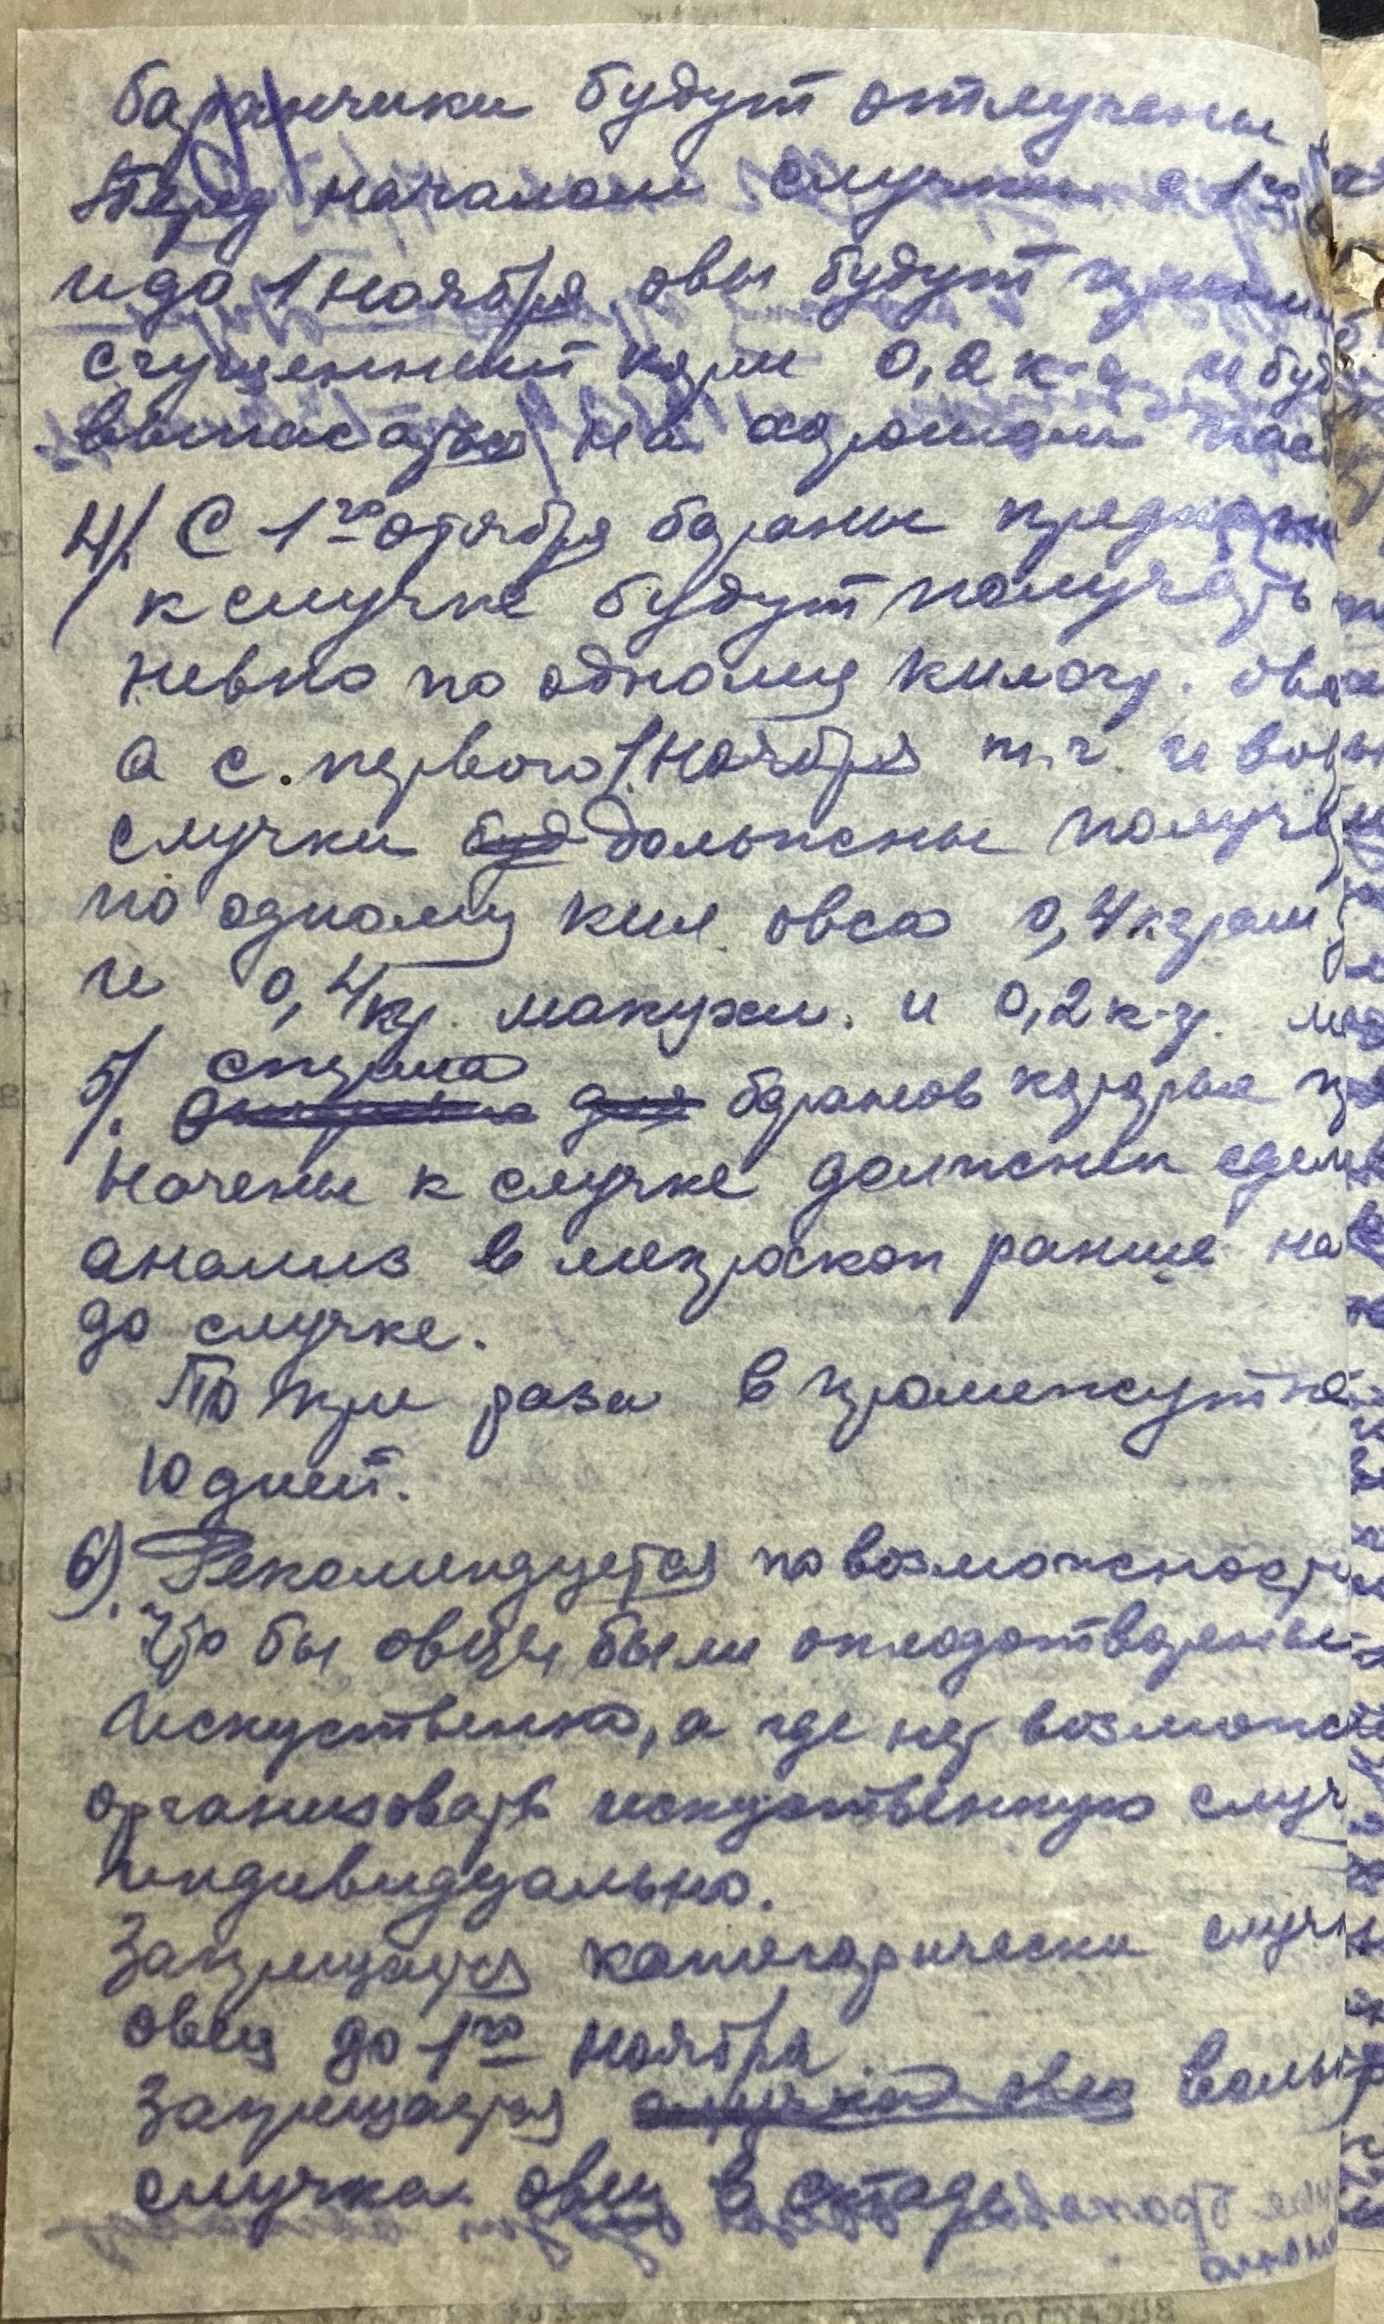 баранчики будут отлучены
Перед началом случки с 1го
и до 1 ноября овы будут
сгущенный корм 0,2 к-г и буд
выпасаться на хорошом пас
4). С 1го отября бараны предн
к случке будут получать
невно по одному килогр. ове
а с. первого 1 ноября т.г. и во
случки буд дольжны получ
по одному кил овса 0,4 кг
и 0,4 кг. макухи. и 0,2 к-г.
5). сперма
для баранов которые
начены к случке должны сдел
анализ в микроскоп ранше на
до случке.
По три раза в промежутке
10 дней.
6). Рекомендуется по возможности
Что бы овцы были оплодотворены
искуственно, а где не возможн
организовать искуственную случ
индивидуально.
Запрещается категорически случк
овец до 1го ноября
Запрещается вольн
случка овец в стаде